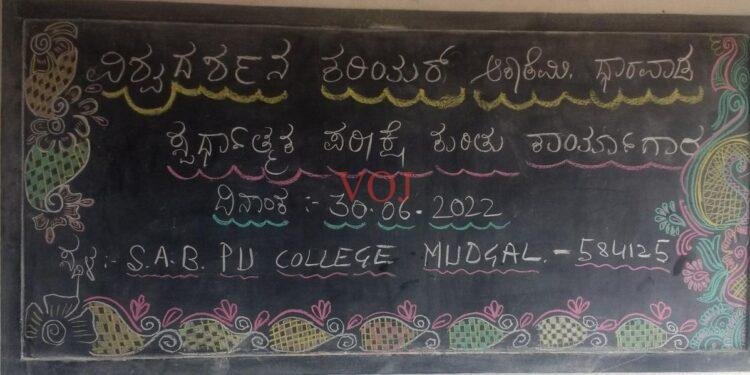 ವಿಶ್ವದರ್ಶನ ಕರಿಯರ್ ಅಕಾಡೆಮಿ, ಧಾರವಾಡ
ಸ್ಪರ್ಧಾತ್ಮಕ ಪರೀಕ್ಷೆ ಕುರಿತು ಕಾರ್ಯಾಗಾರ
VOJ
ದಿನಾಂಕ :- 30.06.2022
ಸ್ಥಳ :- S.A.B. PU COLLEGE MUDGAL.- 584125